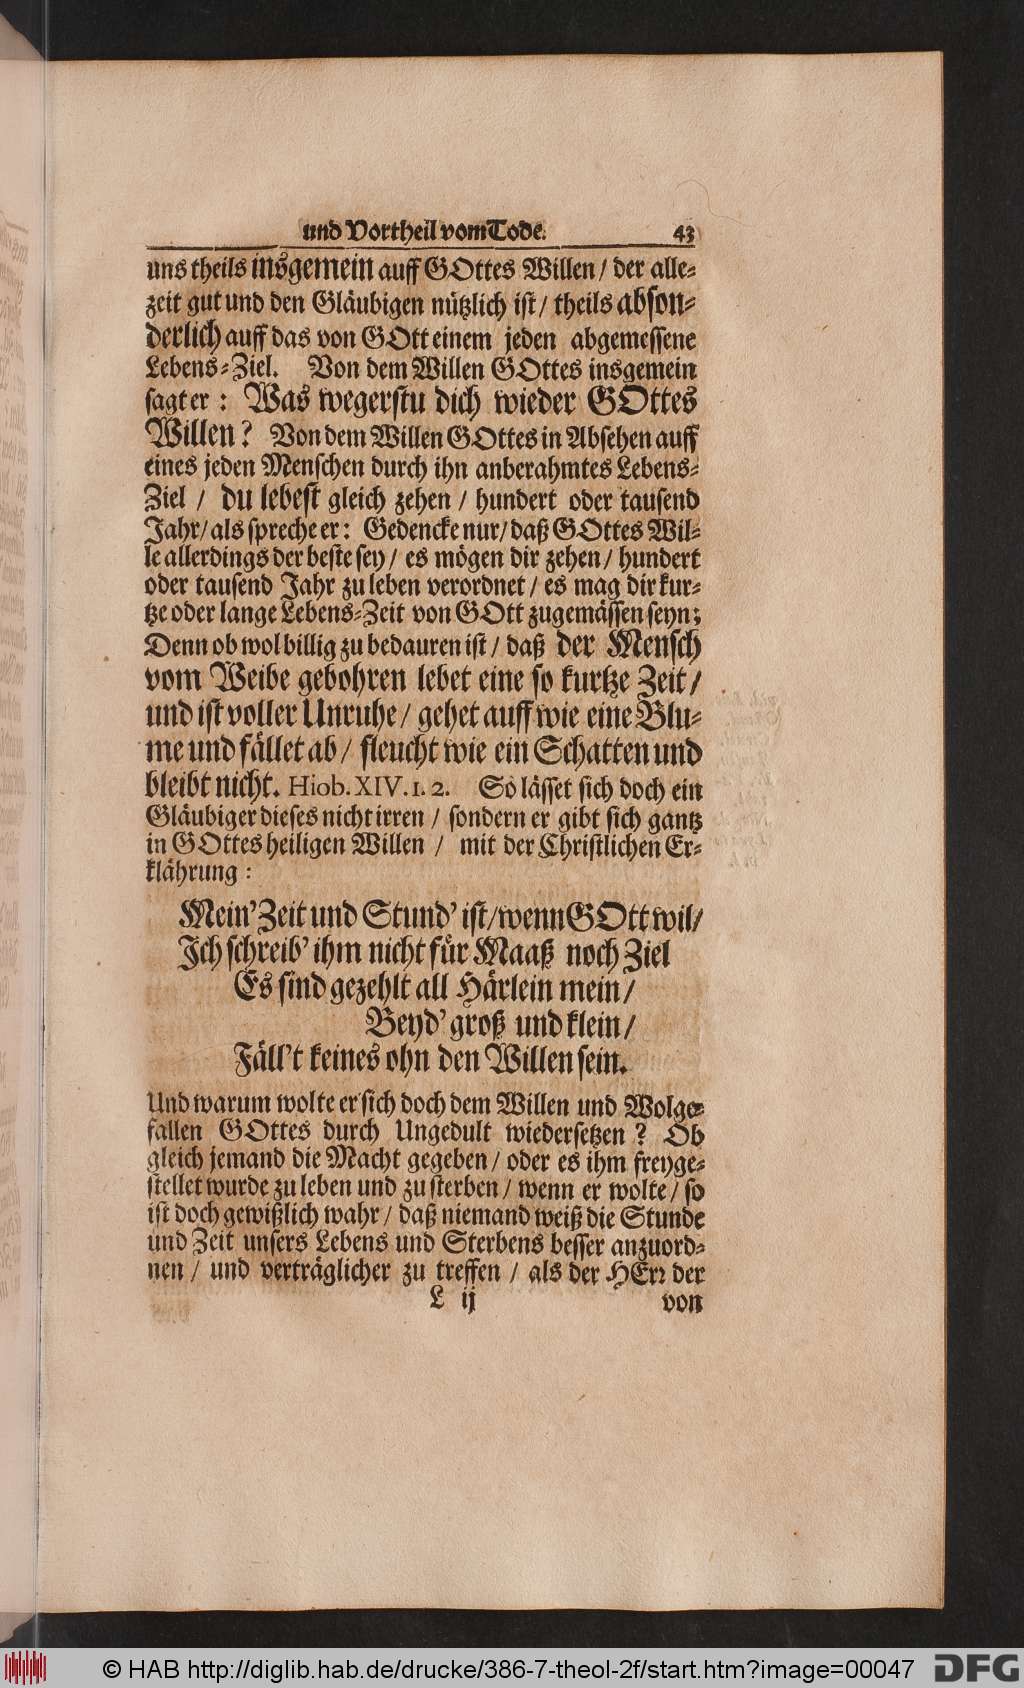 und Vortheil vom Tode. 43
uns theils insgemein auff GOttes Willen / der alle-
zeit gut und den Gläubigen nützlich ist / theils abson-
derlich auff das von GOtt einem jeden abgemessene
Lebens-Ziel. Von dem Willen GOttes insgemein
sagt er : Was wegerstu dich wieder GOttes
Willen? Von dem Willen GOttes in Absehen auff
eines jeden Menschen durch ihn anberahmtes Lebens-
Ziel / du lebest gleich zehen / hundert oder tausend
Jahr / als spreche er : Gedencke nur / daß GOttes Wil-
le allerdings der beste sey / es mögen dir zehen / hundert
oder tausend Jahr zu leben verordnet / es mag dir kur-
tze oder lange Lebens-Zeit von GOtt zugemässen seyn;
Denn ob wol billig zu bedauren ist / daß der Mensch
vom Weibe gebohren lebet eine so kurtze Zeit /
und ist voller Unruhe / gehet auff wie eine Blu-
me und fället ab / fleucht wie ein Schatten und
bleibt nicht. Hiob. XIV. 1. 2. So lässet sich doch ein
Gläubiger dieses nicht irren / sondern er gibt sich gantz
in GOttes heiligen Willen / mit der Christlichen Er-
klährung :
Mein' Zeit und Stund' ist / wenn GOtt wil /
Ich schreib' ihm nicht für Maaß noch Ziel
Es sind gezehlt all Härlein mein /
Beyd' groß und klein /
Fäll't keines ohn den Willen sein.
Und warum wolte er sich doch dem Willen und Wolge-
fallen GOttes durch Ungedult wiedersetzen ? Ob
gleich jemand die Macht gegeben / oder es ihm freyge-
stellet wurde zu leben und zu sterben / wenn er wolte / so
ist doch gewißlich wahr / daß niemand weiß die Stunde
und Zeit unsers Lebens und Sterbens besser anzuord-
nen / und verträglicher zu treffen / als der HErr der
L ij von
© HAB http://diglib.hab.de/drucke/386-7-theol-2f/start.htm?image=00047 DFG